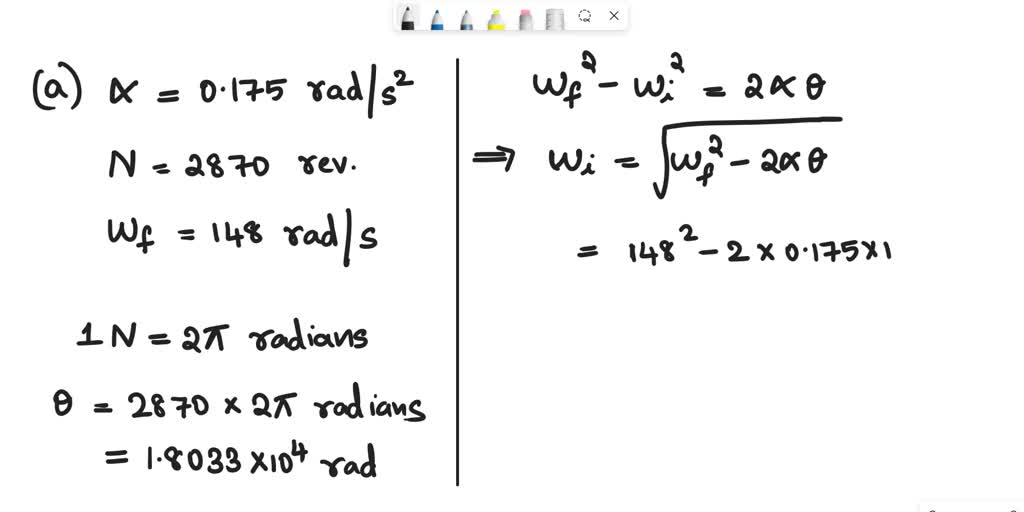 (a) α = 0.175 rad/s²
N = 2870 rev.
ωf = 148 rad/s
1 N = 2π radians
θ = 2870 × 2π radians
= 1.8033 × 10⁴ rad
ωf² - ωi² = 2αθ
⇒ ωi = √(ωf² - 2αθ)
= 148² - 2 × 0.175 × 1